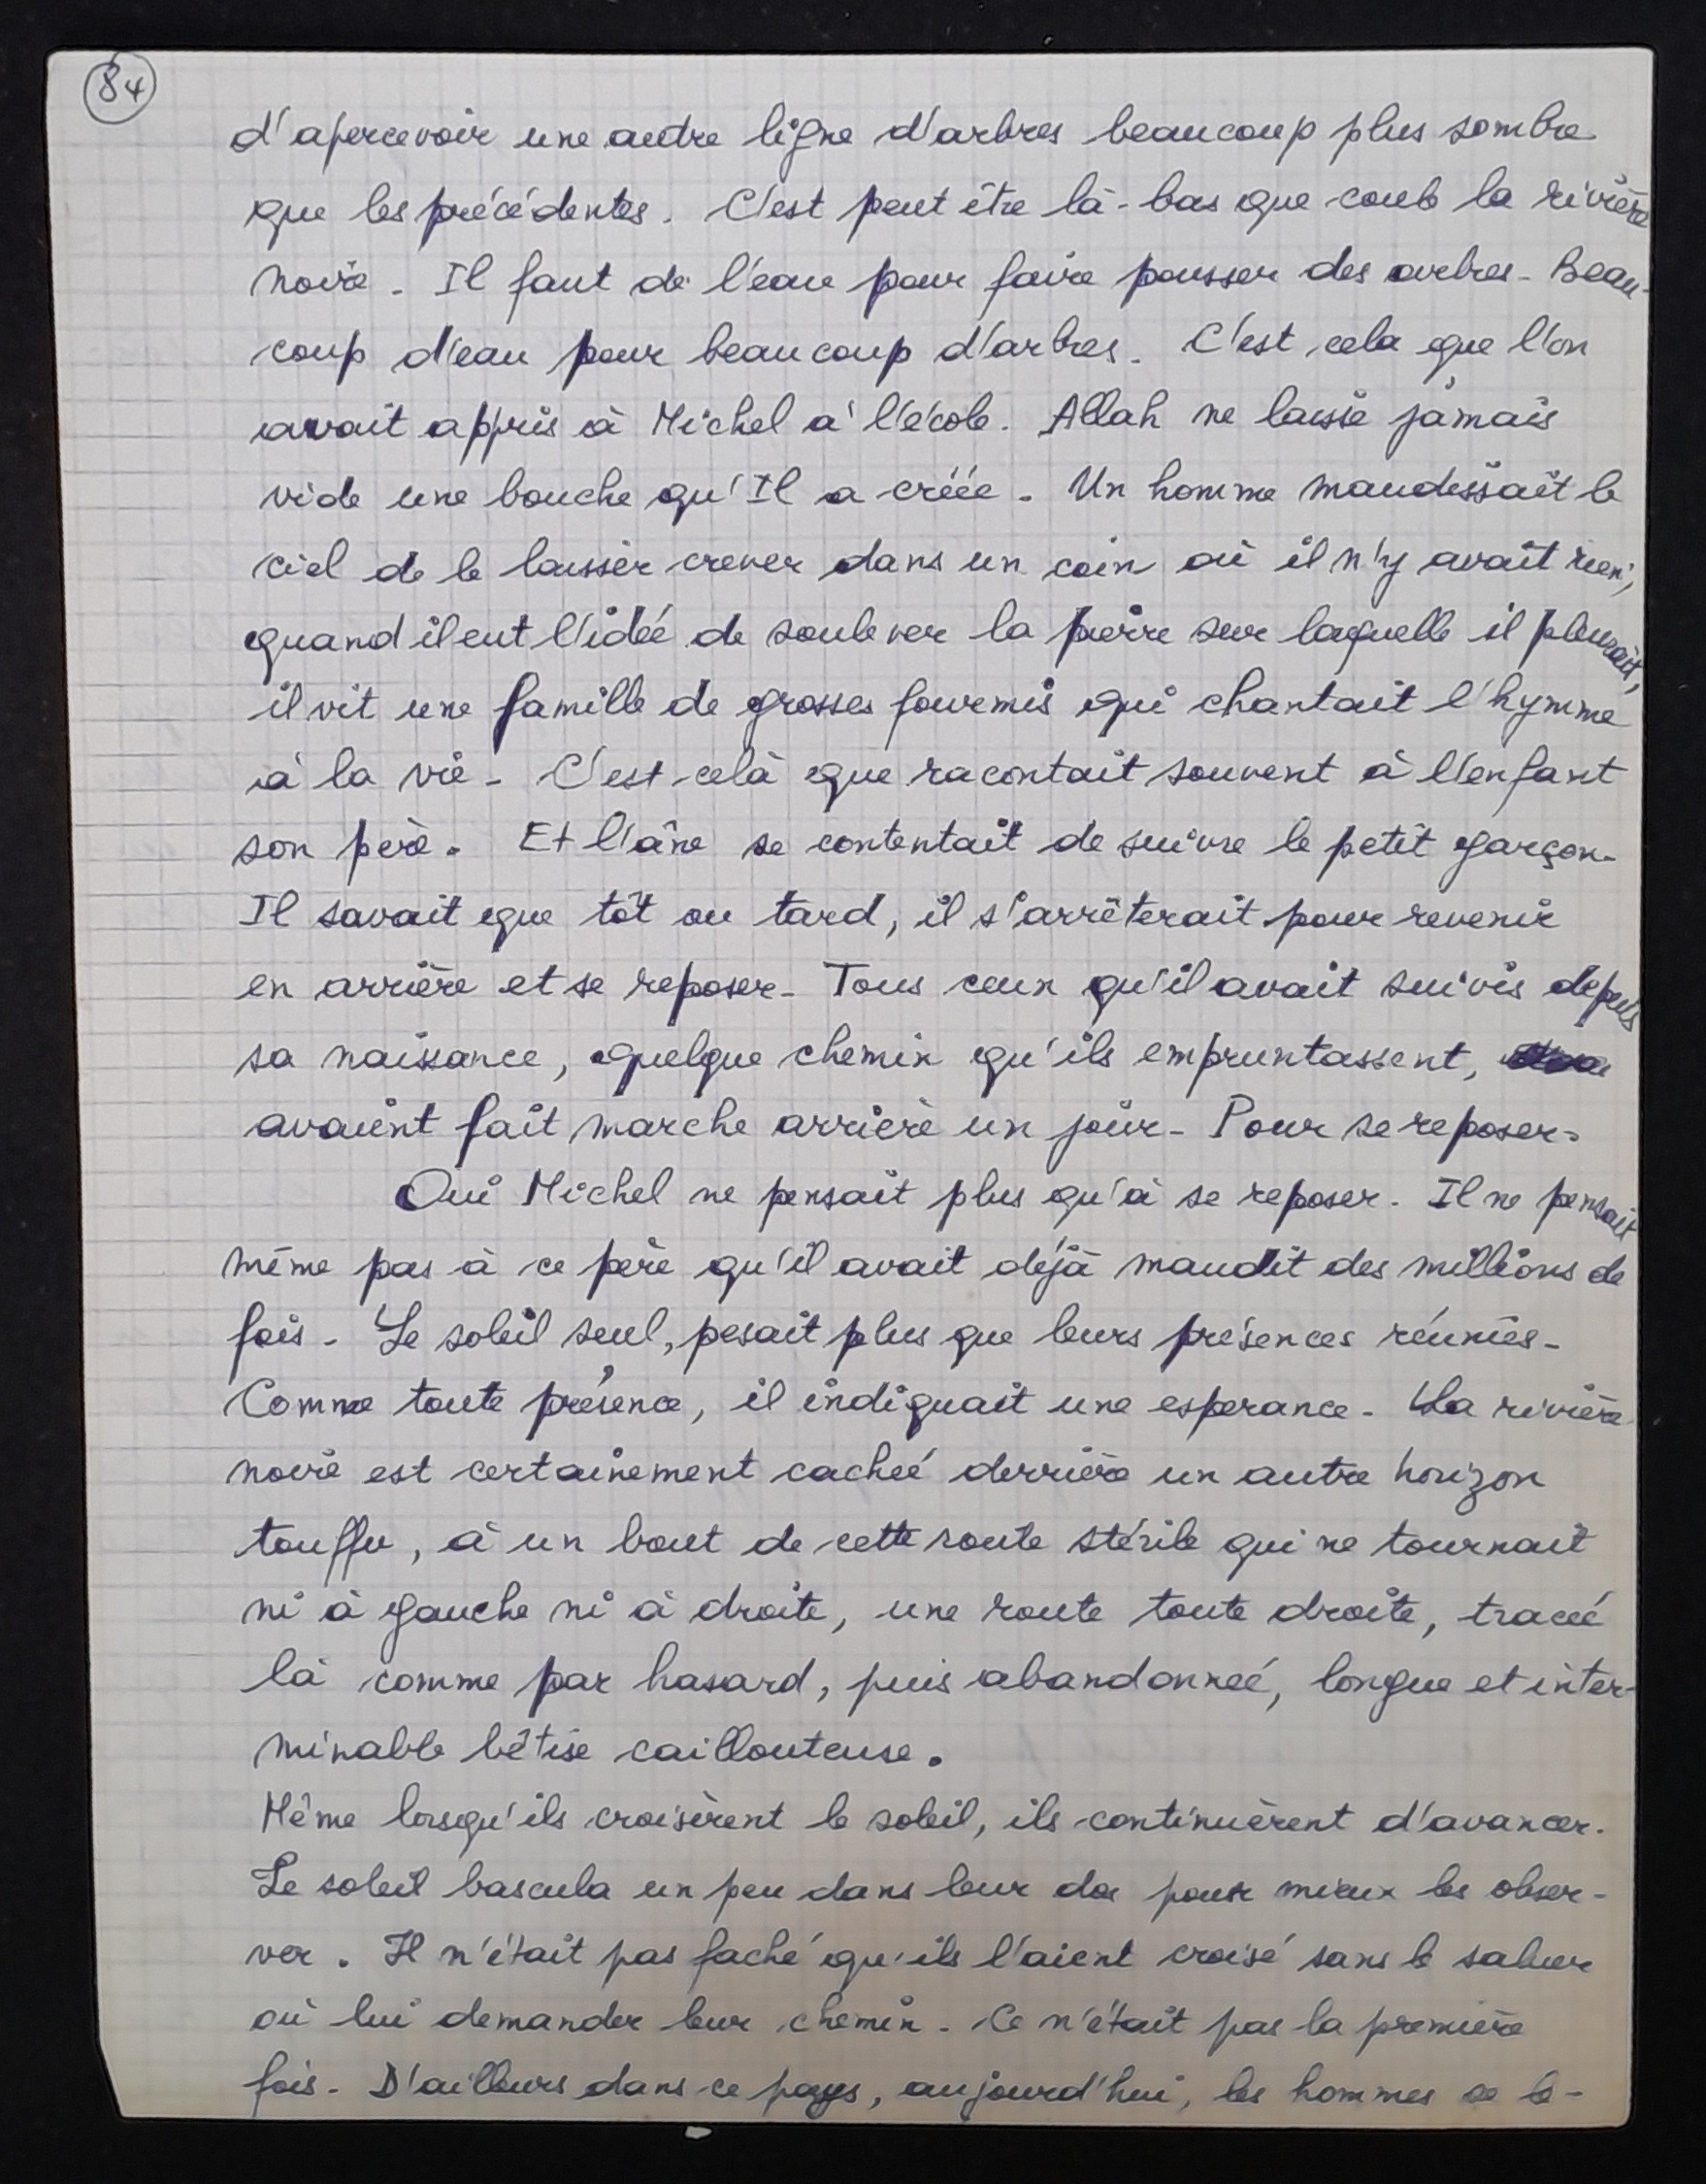 84
d'apercevoir une autre ligne d'arbres beaucoup plus sombre
que les précédentes. C'est peut être là-bas que coule la rivière
noire. Il faut de l'eau pour faire pousser des arbres. Beau-
coup d'eau pour beaucoup d'arbres. C'est cela que l'on
avait appris à Michel à l'école. Allah ne laisse jamais
vide une bouche qu'Il a créée. Un homme maudissait le
ciel de le laisser crever dans un coin où il n'y avait rien;
quand il eut l'idée de soulever la pierre sur laquelle il pleurait,
il vit une famille de grosses fourmis qui chantait l'hymme
à la vie. C'est celà que racontait souvent à l'enfant
son père. Et l'âne se contentait de suivre le petit garçon.
Il savait que tôt ou tard, il s'arrêterait pour revenir
en arrière et se reposer. Tous ceux qu'il avait suivis depuis
sa naissance, quelque chemin qu'ils empruntassent,
avaient fait marche arrière un jour. Pour se reposer.
Oui Michel ne pensait plus qu'à se reposer. Il ne pensait
même pas à ce père qu'il avait déjà maudit des millions de
fois. Le soleil seul, pesait plus que leurs présences réunies.
Comme toute présence, il indiquait une esperance. La rivière
noire est certainement cachée derrière un autre horizon
touffu, à un bout de cette route stérile qui ne tournait
ni à gauche ni à droite, une route toute droite, tracée
là comme par hasard, puis abandonnée, longue et inter-
minable bêtise caillouteuse.
Même lorsqu'ils croisèrent le soleil, ils continuèrent d'avancer.
Le soleil bascula un peu dans leur dos pour mieux les obser-
ver. Il n'était pas faché qu'ils l'aient croisé sans le saluer
où lui demander leur chemin. Ce n'était pas la première
fois. D'ailleurs dans ce pays, aujourd'hui, les hommes se le-